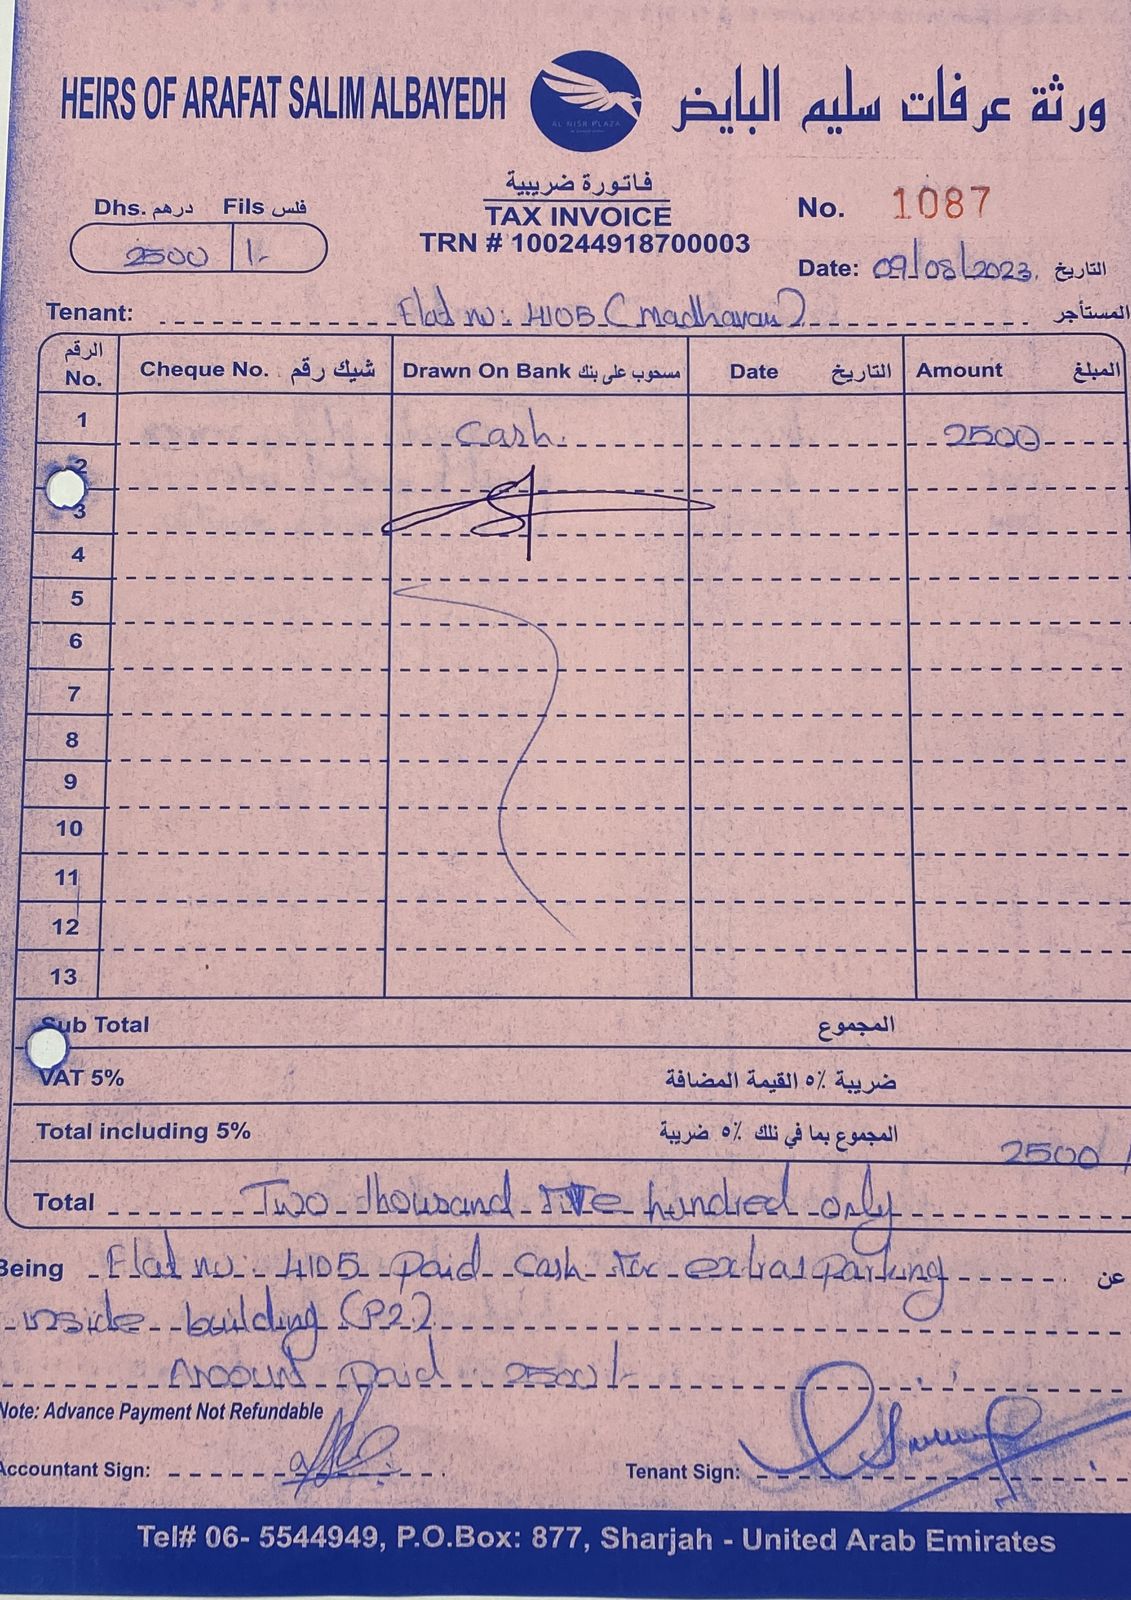 HEIRS OF ARAFAT SALIM ALBAYEDH
AL NISR PLAZA
ورثة عرفات سليم البايض
فاتورة ضريبية
TAX INVOICE
TRN # 100244918700003
Dhs. درهم Fils فلس
2500 /-
No. 1087
Date: 09/08/2023. التاريخ
Tenant: Flat no: 4105 (Madhavan) المستأجر
الرقم No. Cheque No. شيك رقم Drawn On Bank مسحوب على بنك Date التاريخ Amount المبلغ
1 Cash. 2500
2
3
4
5
6
7
8
9
10
11
12
13
Sub Total المجموع
VAT 5% ضريبة ٥٪ القيمة المضافة
Total including 5% المجموع بما في نلك ٥٪ ضريبة 2500/
Total Two thousand five hundred only
Being Flat no: 4105 paid cash for extra parking عن
inside building (P2.)
Amount paid 2500/-
Note: Advance Payment Not Refundable
Accountant Sign:
Tenant Sign:
Tel# 06- 5544949, P.O.Box: 877, Sharjah - United Arab Emirates